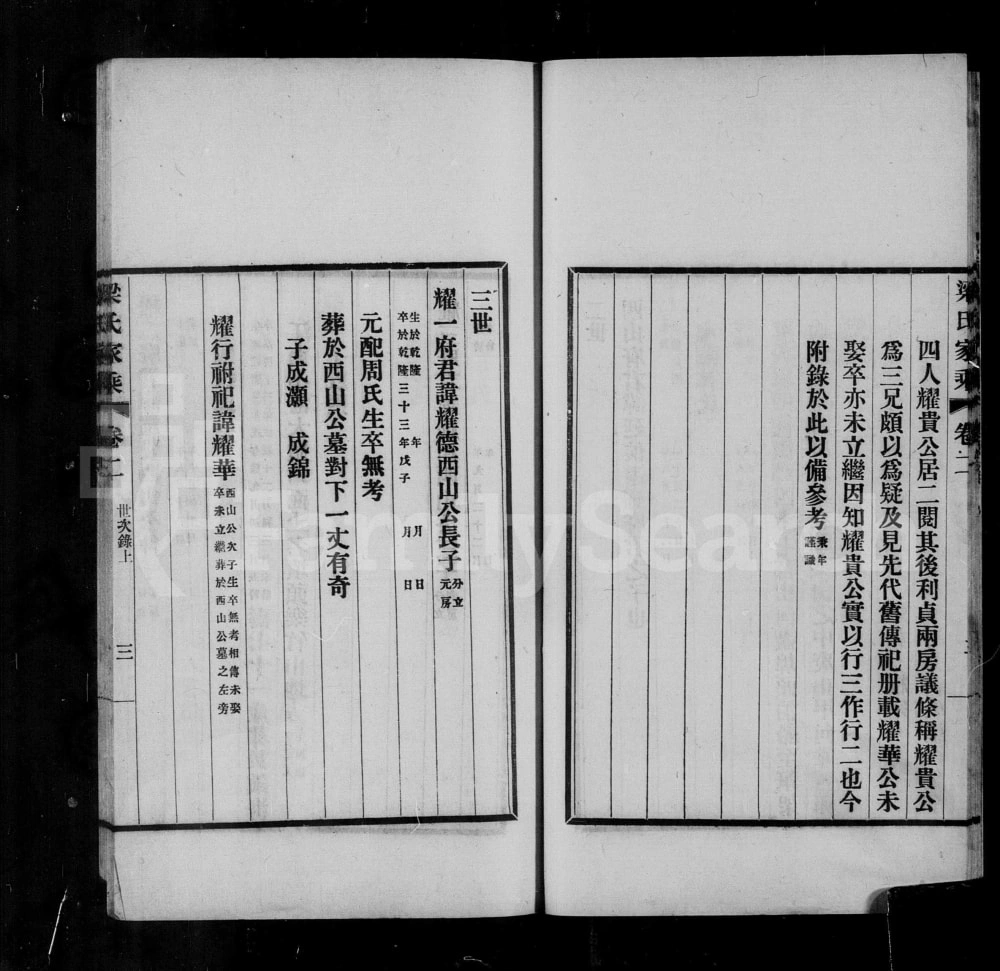 梁氏家乘 卷二
四人耀貴公居二閱其後利貞兩房議條稱耀貴公
爲三兄頗以爲疑及見先代舊傳祀册載耀華公未
娶卒亦未立繼因知耀貴公實以行三作行二也今
附錄於此以備參考
乘年
謹識
三世
耀一府君諱耀德西山公長子
分立
元房
生於乾隆 年 月 日
卒於乾隆三十三年戊子 月 日
元配周氏生卒無考
葬於西山公墓對下一丈有奇
子成灝 成錦
耀行祔祀諱耀華
西山公次子生卒無考相傳未娶
卒未立繼葬於西山公墓之左旁
梁氏家乘 卷二 世次錄上 三